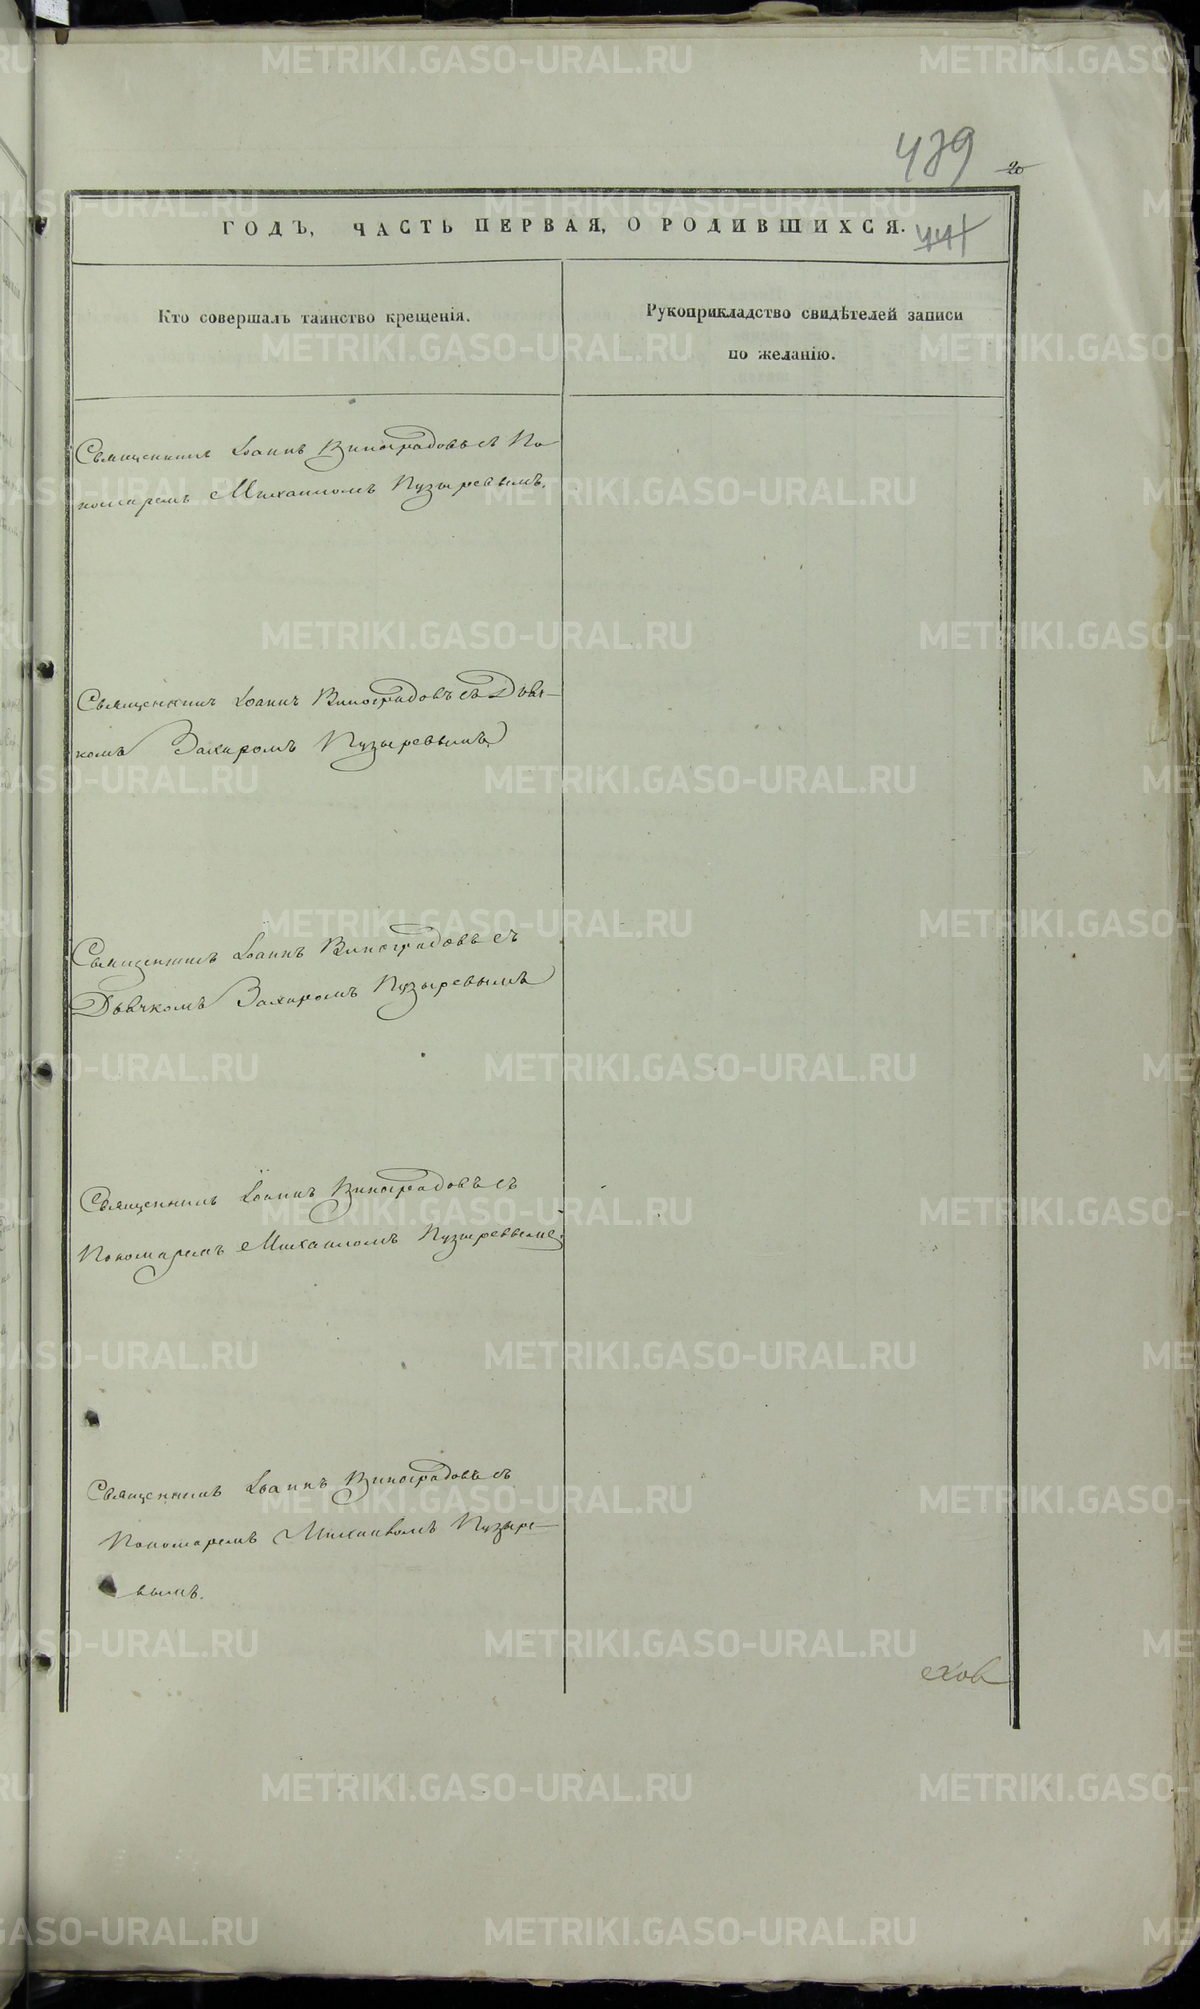 439
20
ГОДЪ, ЧАСТЬ ПЕРВАЯ, О РОДИВШИХСЯ.
441
Кто совершалъ таинство крещенія.
Рукоприкладство свидѣтелей записи
по желанію.
Священникъ Іоаннъ Виноградовъ съ По
номаремъ Михаиломъ Пузыревымъ.
Священникъ Іоаннъ Виноградовъ съ Дьяч-
комъ Захаромъ Пузыревымъ
Священникъ Іоаннъ Виноградовъ съ
Дьячкомъ Захаромъ Пузыревымъ
Священникъ Іоаннъ Виноградовъ съ
Пономаремъ Михаиломъ Пузыревымъ.
Священникъ Іоаннъ Виноградовъ съ
Пономаремъ Михаиломъ Пузыре-
вымъ.
METRIKI.GASO-URAL.RU